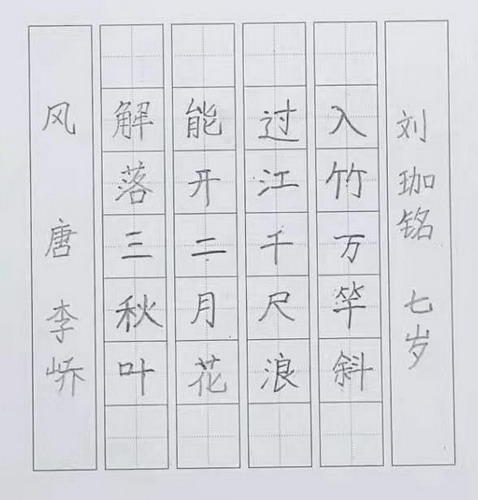 风 唐 李峤
解落三秋叶
能开二月花
过江千尺浪
入竹万竿斜
刘珈铭 七岁